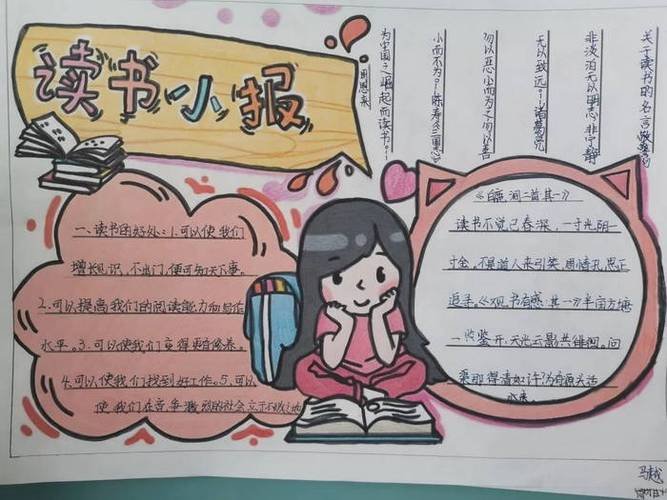 读书小报
关于读书的名言警句
非淡泊无以明志,非宁静
无以致远。——诸葛亮
勿以恶小而为之,勿以善
小而不为。——陈寿《三国志》
为中国之崛起而读书——
周恩来
一、读书的好处:1.可以使我们
增长见识,不出门,便可知天下事。
2.可以提高我们的阅读能力和写作
水平。3.可以使我们变得更有修养。
4.可以使我们找到好工作。5.可以
使我们在竞争激烈的社会立于不败之地
《白鹿洞二首其一》
读书不觉已春深,一寸光阴一
寸金。不是道人来引笑,周情孔思正
追寻。《观书有感·其一》半亩方塘
一鉴开,天光云影共徘徊。问
渠那得清如许?为有源头活
水来。
马越